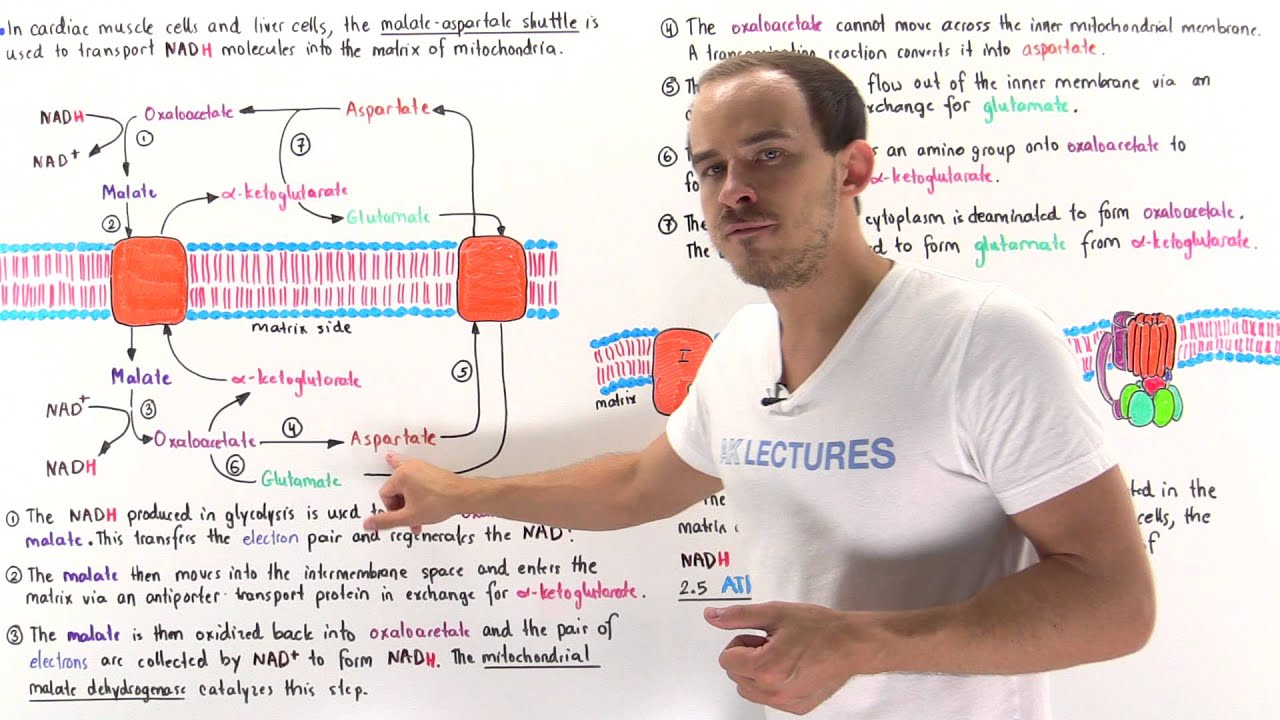 • In cardiac muscle cells and liver cells, the malate-aspartate shuttle is
used to transport NADH molecules into the matrix of mitochondria.
NADH
NAD+
①
Oxaloacetate
Aspartate
⑦
Malate
②
α-ketoglutarate
Glutamate
matrix side
Malate
α-ketoglutarate
⑤
NAD+
③
NADH
Oxaloacetate
④
Aspartate
⑥
Glutamate
① The NADH produced in glycolysis is used
malate. This transfers the electron pair and regenerates the NAD+.
② The malate then moves into the intermembrane space and enters the
matrix via an antiporter transport protein in exchange for α-ketoglutarate.
③ The malate is then oxidized back into oxaloacetate and the pair of
electrons are collected by NAD+ to form NADH. The mitochondrial
malate dehydrogenase catalyzes this step.
④ The oxaloacetate cannot move across the inner mitochondrial membrane.
A reaction converts it into aspartate.
⑤ flow out of the inner membrane via an
exchange for glutamate.
⑥ an amino group onto oxaloacetate to
α-ketoglutarate.
⑦ The cytoplasm is deaminated to form oxaloacetate.
The to form glutamate from α-ketoglutarate.
I
matrix
AK LECTURES
in the
matrix cells, the
NADH of
2.5